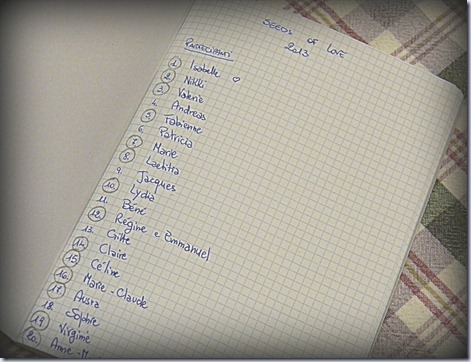 SEEDS OF LOVE
2013
PARTECIPANTI
1. Isabelle ♡
2. Nikki
3. Valerie
4. Andreas
5. Fabienne
6. Patricia
7. Marie
8. Laetitia
9. Jacques
10. Lydia
11. Béné
12. Régine e Emmanuel
13. Gitte
14. Claire
15. Céline
16. Marie-Claude
17. Ausra
18. Sophie
19. Virginie
20. Anne-M